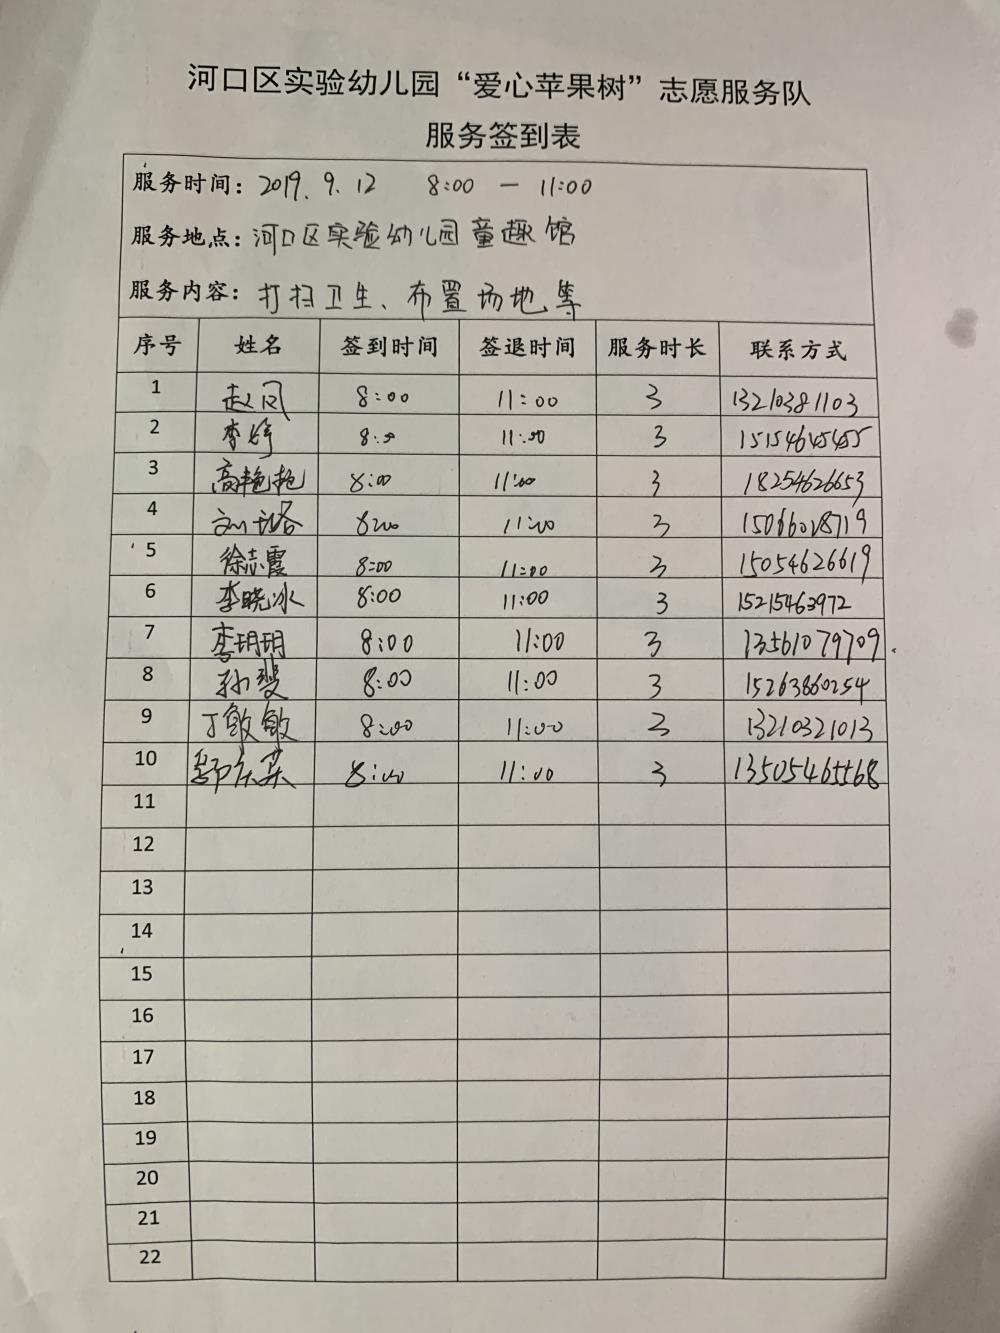 河口区实验幼儿园“爱心苹果树”志愿服务队
服务签到表
服务时间：2019.9.12 8:00 — 11:00
服务地点：河口区实验幼儿园童趣馆
服务内容：打扫卫生、布置场地等
序号 姓名 签到时间 签退时间 服务时长 联系方式
1 赵风 8:00 11:00 3 13210381103
2 李婷 8:00 11:00 3 15154645455
3 高艳艳 8:00 11:00 3 18254626653
4 8:00 11:00 3 15066028719
5 徐志霞 8:00 11:00 3 15054626619
6 李晓冰 8:00 11:00 3 15215463972
7 李玥玥 8:00 11:00 3 13561079709
8 孙斐 8:00 11:00 3 15263860254
9 丁敏敏 8:00 11:00 3 13210321013
10 8:00 11:00 3 13505465568
11
12
13
14
15
16
17
18
19
20
21
22